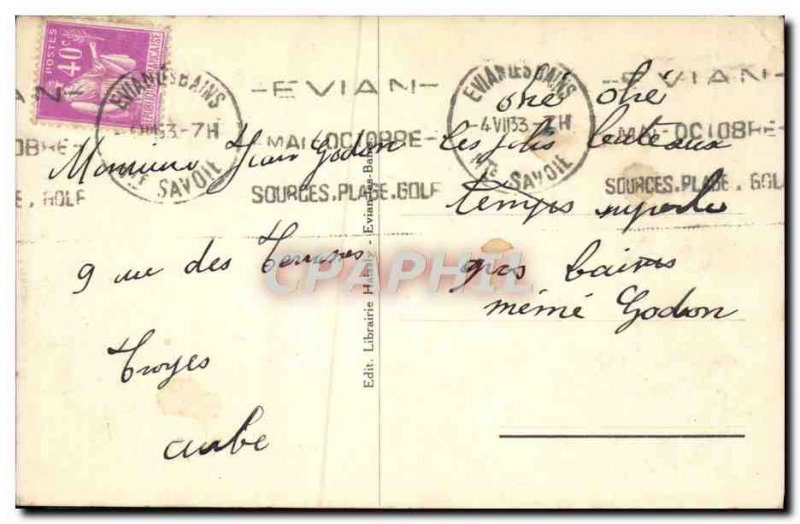 POSTES
40c
RÉPUBLIQUE FRANÇAISE
EVIAN LES BAINS
4 VII 33 - 7H
Hte SAVOIE
-EVIAN-
MAI-OCTOBRE-
SOURCES.PLAGE.GOLF
EVIAN LES BAINS
4 VII 33 - 7H
Hte SAVOIE
-EVIAN-
MAI-OCTOBRE-
SOURCES.PLAGE.GOLF
Monsieur Jean Godon
9 rue des
Troyes
aube
Edit. Librairie - Evian-les-Bains
ohé ohé
les jolis bateaux
temps superbe
gros baisers
mémé Godon
CPAPHIL